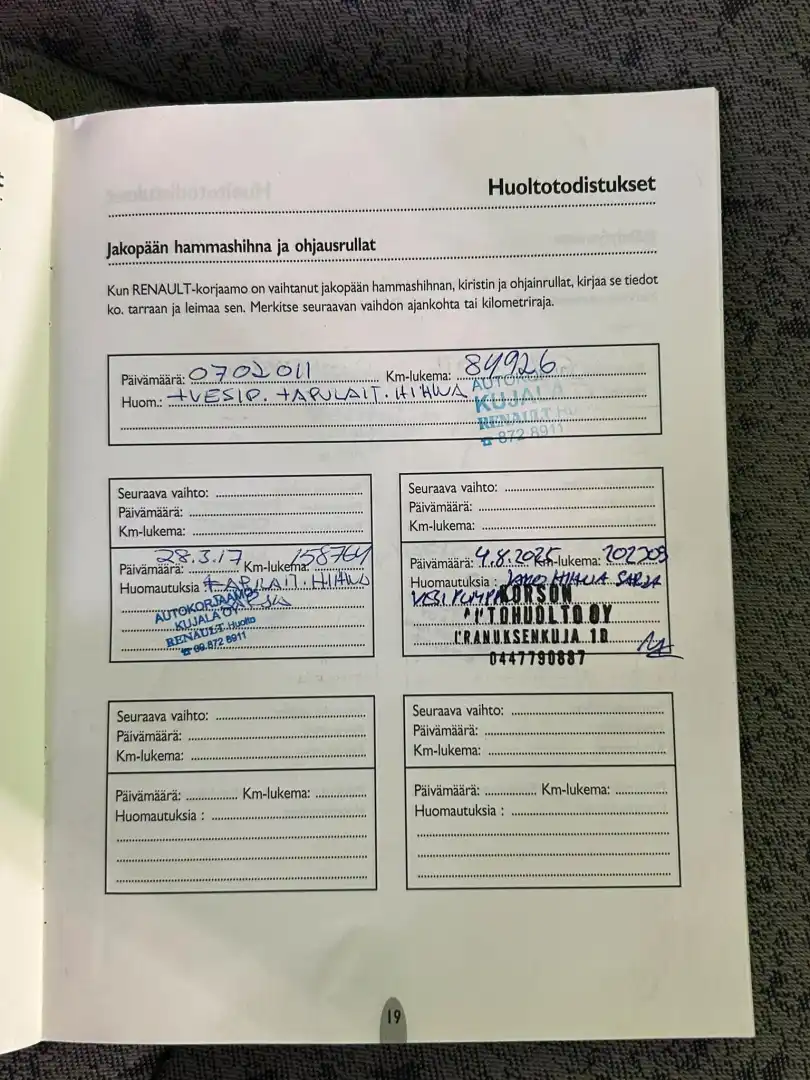 Huoltotodistukset
Jakopään hammashihna ja ohjausrullat
Kun RENAULT-korjaamo on vaihtanut jakopään hammashihnan, kiristin ja ohjainrullat, kirjaa se tiedot
ko. tarraan ja leimaa sen. Merkitse seuraavan vaihdon ajankohta tai kilometriraja.
Päivämäärä: 0702011 Km-lukema: 84926
Huom.: +VESIP. +APULAIT. HIHNA
AUTOKORJAAMO
KUJALA
RENAULT Hu
☎ 872 8911
Seuraava vaihto:
Päivämäärä:
Km-lukema:
Päivämäärä: 28.3.17 Km-lukema: 158764
Huomautuksia +APULAIT. HIHNA
AUTOKORJAAMO
KUJALA OY
RENAULT Huolto
☎ 09 872 8911
Seuraava vaihto:
Päivämäärä:
Km-lukema:
Päivämäärä: 4.8.2025 Km-lukema: 202709
Huomautuksia : JAKO HIHNA SARJA
VESI PUMPPU
KORSON
AUTOHUOLTO OY
URANUKSENKUJA 1D
0447790887
Seuraava vaihto:
Päivämäärä:
Km-lukema:
Päivämäärä: Km-lukema:
Huomautuksia :
Seuraava vaihto:
Päivämäärä:
Km-lukema:
Päivämäärä: Km-lukema:
Huomautuksia :
19